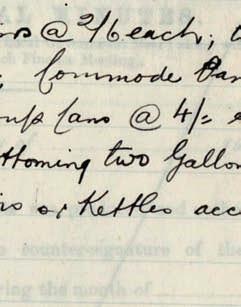 @ 2/6 each; t
; Commode Pan
oup Cans @ 4/=
ttoming two Gallon
rs or Kettles acc
countersignature of the
ring the month of